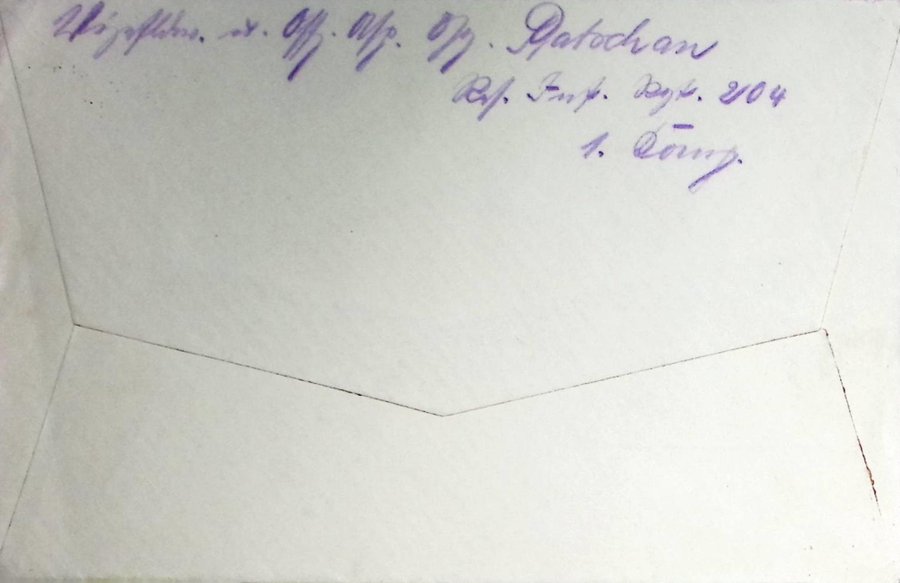 Vizefldw. u. Offz. Asp. Ratschan
Res. Inf. Rgt. 204
1. Komp.